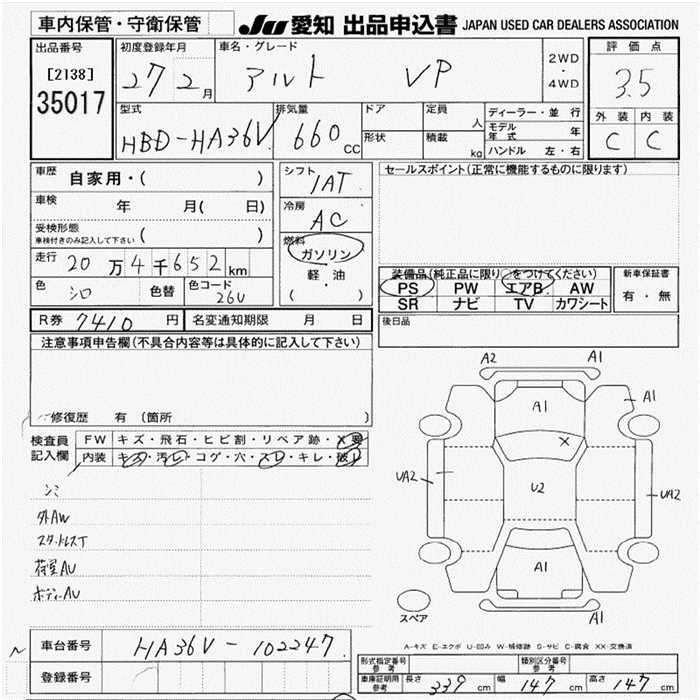 車内保管・守衛保管
JU 愛知 出品申込書 JAPAN USED CAR DEALERS ASSOCIATION
出品番号
[2138]
35017
初度登録年月
27 2月
車名・グレード
アルト VP
2WD
・
4WD
評価点
3.5
外装 内装
C C
型式
HBD-HA36V
排気量
660cc
ドア
形状
定員 人
積載 kg
ディーラー・並行
モデル年式 年
ハンドル 左・右
車歴 自家用・( )
車検 年 月( 日)
受検形態
車検付きのみ記入して下さい ( )
走行 20万4千652km
色 シロ 色替 色コード 26U
シフト
1AT
冷房
AC
燃料
ガソリン
軽・油
( )
セールスポイント(正常に機能するものに限ります)
装備品(純正品に限り○をつけてください)
PS PW エアB AW
SR ナビ TV カワシート
新車保証書
有・無
後日品
R券 7410円 名変通知期限 月 日
注意事項申告欄(不具合内容等は具体的に記入して下さい)
修復歴 有 (箇所 )
検査員
記入欄
FW キズ・飛石・ヒビ割・リペア跡・X要
内装 キズ・汚レ・コゲ・穴・スレ・キレ・破レ
シミ
外AW
スタッドレスT
荷室AU
ボディーAU
A2 A1
A1 A1
X
UA2 U2 UA2
A1
A1
スペア
A-キズ E-エクボ U-凹み W-補修跡 S-サビ C-腐食 XX-交換済
車台番号 HA36V-102247
登録番号
形式指定番号
参考
類別区分番号
参考
車庫証明用
参考
長さ 339cm 幅 147cm 高さ 147cm